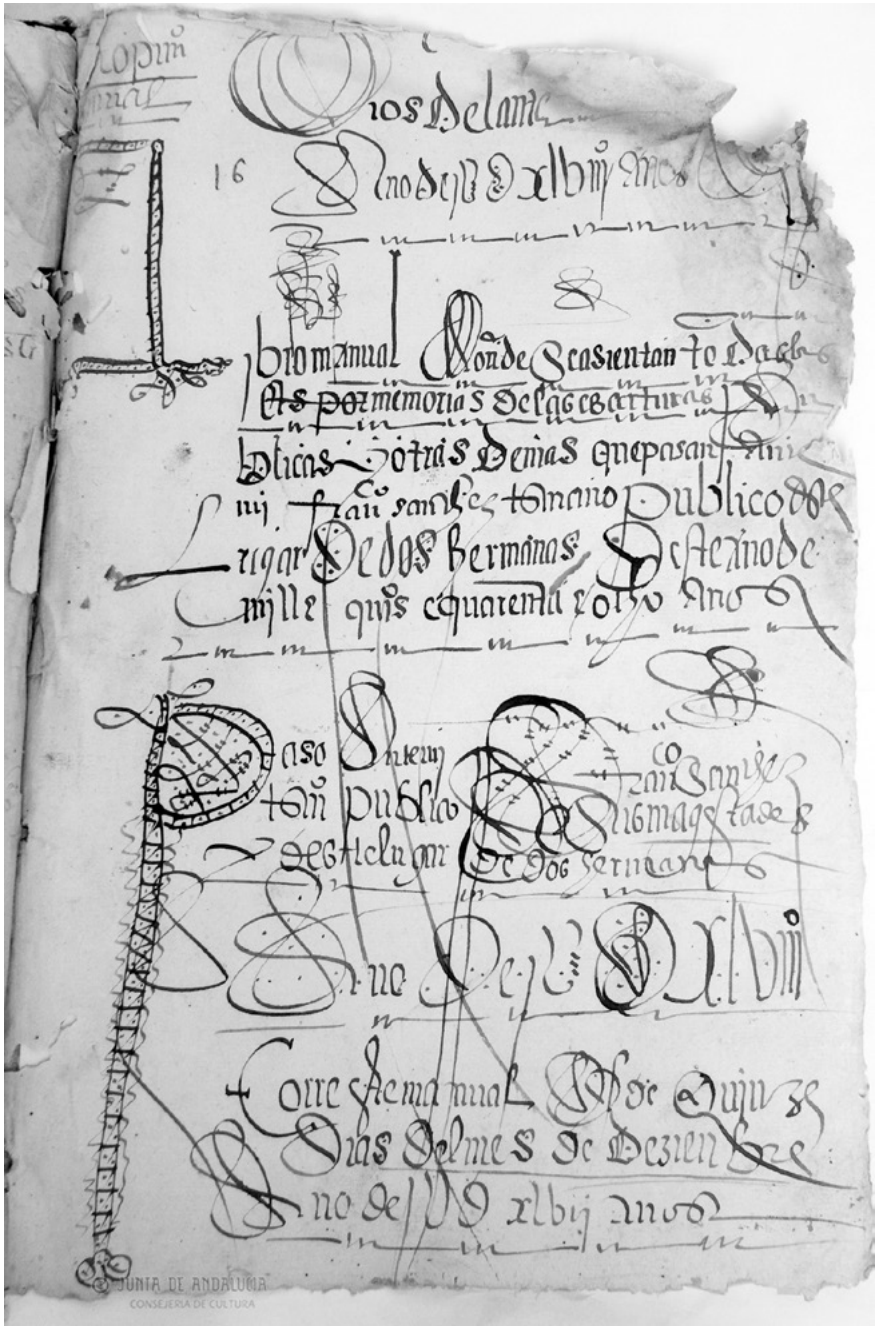 copim
manual
Dios Delante
16
Año de jU D xlviijº Años
Libro manual Donde Se asientan todas las
por memorias De las escritturas pu
blicas y otras Demas que pasan Ante
mi franco sanches escrivano publico dste
lugar De dos hermanas Deste año de
mille quis e quarenta e ocho Años
Paso Ante mj franco Sanches
publico De sus magestades
deste lugar De dos hermanas
Año De jU D XLviij
Corre este manual desde Quinze
Dias Del mes de Dezienbre
Año de jU D xlvij Años
JUNTA DE ANDALUCIA
CONSEJERIA DE CULTURA